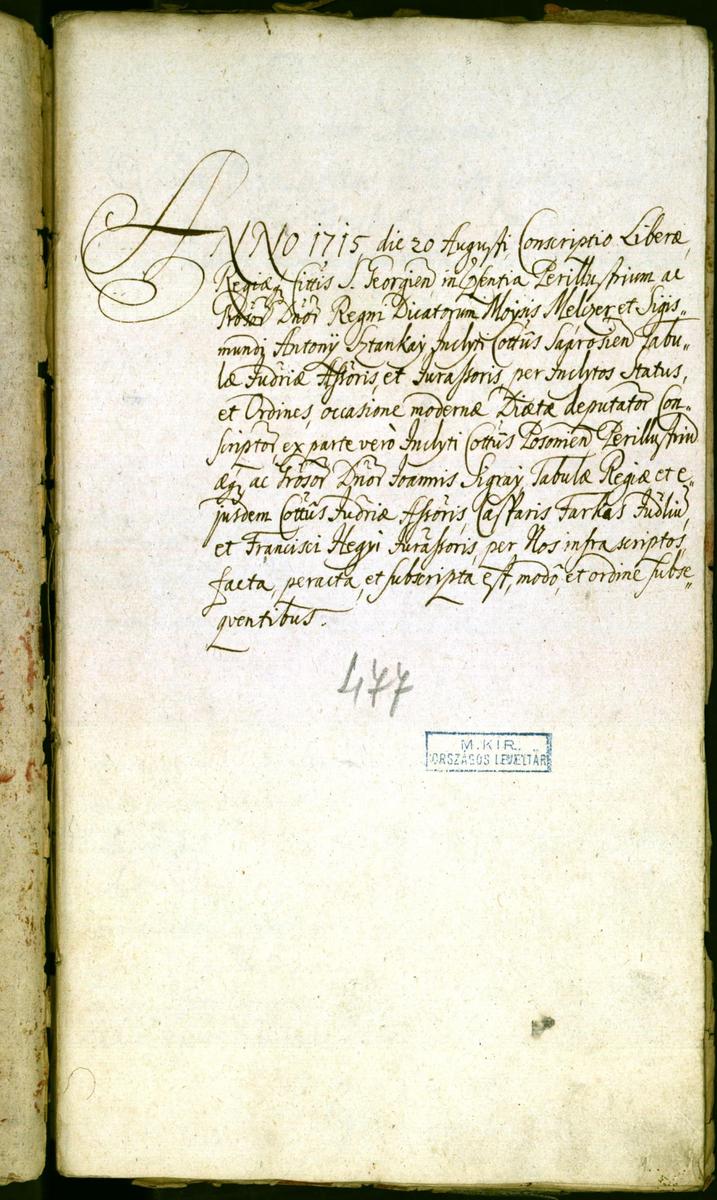 ANNO 1715 die 20 Augusti, Conscriptio Liberæ,
Regiæq Cittis S. Georgien, in Pñtia Perillustrium ac
Grõsõr Dnõr Regni Dicatorum Moysis Melczer et Sigis„
mundi Antonÿ Sztankaÿ Inclyti Cottûs Sáárosien Tabu„
læ Judriæ Assõris, et Jurassoris, per Inclytos Status,
et Ordines, occasione modernæ Diætæ deputator Con„
scriptor ex parte verò Inclyti Cottûs Posonien Perillustriũ
æq ac Grõsõr Dnõr Joannis Sigray, Tabulæ Regiæ et e„
jusdem Cottûs Judriæ Assõris, Casparis Farkas Judliũ,
et Francisci Hegyi Jurassoris, per Nos infra scriptos,
facta, peracta, et subscripta est, modô, et ordine subse„
qventibus.
477
M. KIR.
ORSZÁGOS LEVÉLTÁR